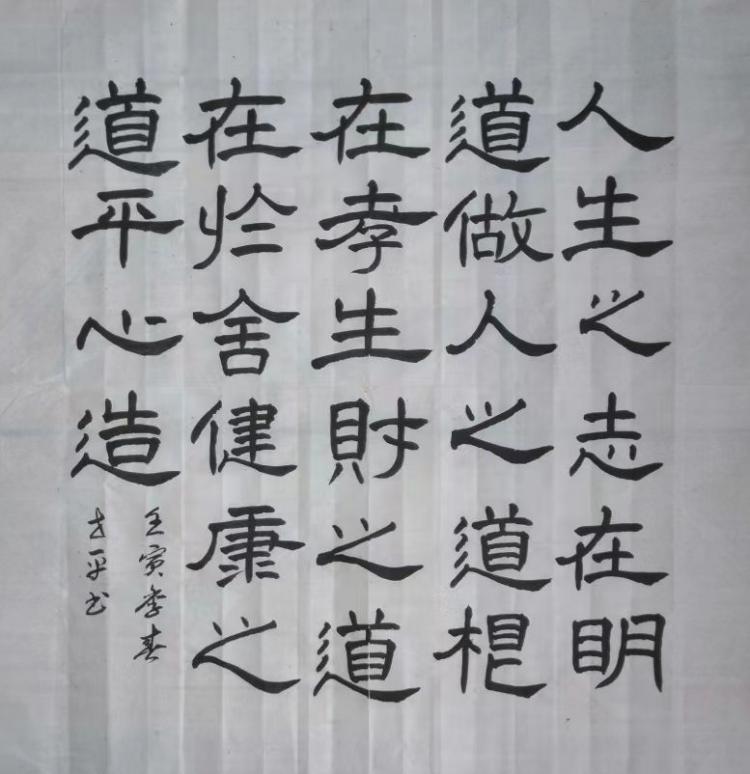 人生之志在明
道做人之道根
在孝生財之道
在於舍健康之
道平心造
壬寅季春
平书